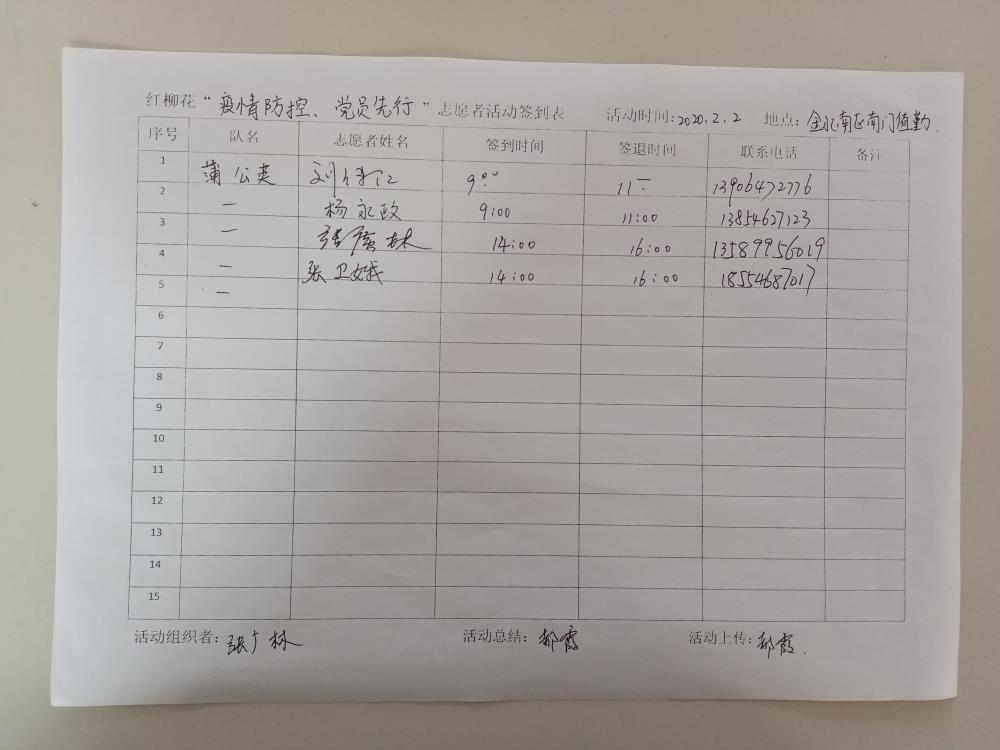 红柳花“疫情防控、党员先行”志愿者活动签到表 活动时间:2020.2.2 地点:金水南区南门值勤.
序号 队名 志愿者姓名 签到时间 签退时间 联系电话 备注
1 蒲公英 刘 9:00 11 13906472776
2 一 杨永政 9:00 11:00 13854627123
3 一 张广林 14:00 16:00 13589956019
4 一 张卫娥 14:00 16:00 18554687017
5 一
6
7
8
9
10
11
12
13
14
15
活动组织者:张广林 活动总结:郝霞 活动上传:郝霞.